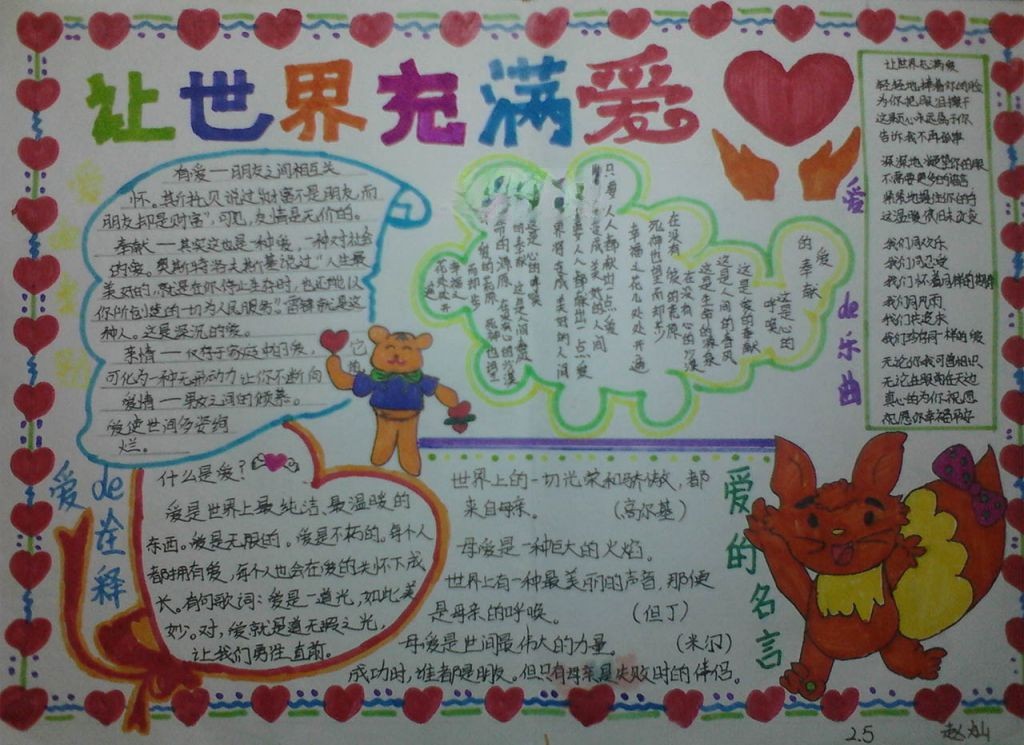 让世界充满爱
有爱——朋友之间相互关
怀。其尔托贝说过"财富不是朋友,而
朋友却是财富",可见,友情是无价的。
奉献——其实这也是一种爱,一种对社会
的爱。奥斯特洛夫斯基说过"人生最
美好的,就是在你停止生存时,也还能以
你所创造的一切为人民服务"雷锋就是这
种人。这是深沉的爱。
亲情——仅存于家庭中的爱,它的
可化为一种无形动力让你不断向
爱情——男女之间的倾慕。
爱使世间多姿绚
烂。
爱的奉献
这是心的呼唤
这是爱的奉献
这是人间的春风
这是生命的源泉
在没有心的沙漠
在没有爱的荒原
死神也望而却步
幸福之花儿处处开遍
只要人人都献出一点爱
爱de乐曲
让世界充满爱
轻轻地捧着你的脸
为你把眼泪擦干
这颗心永远属于你
告诉我不再孤单
深深地凝望你的眼
不需要更多的语言
紧紧地握住你的手
这温暖依旧未改变
我们同欢乐
我们同忍受
我们怀着同样的期待
我们同风雨
我们共追求
我们珍存同一样的爱
无论你我可曾相识
无论在眼前在天边
真心的为你祝愿
祝愿你幸福平安
爱de在释
什么是爱?
爱是世界上最纯洁、最温暖的
东西。爱是无限的。爱是不朽的。每个人
都拥有爱,每个人也会在爱的关怀下成
长。有句歌词:爱是一道光,如此美
妙。对,爱就是道无暇之光,
让我们勇往直前。
爱的名言
世界上的一切光荣和骄傲,都
来自母亲。(高尔基)
母爱是一种巨大的火焰。
世界上有一种最美丽的声音,那便
是母亲的呼唤。(但丁)
母爱是世间最伟大的力量。(米尔)
成功时,谁都是朋友。但只有母亲是失败时的伴侣。
2.5 赵灿